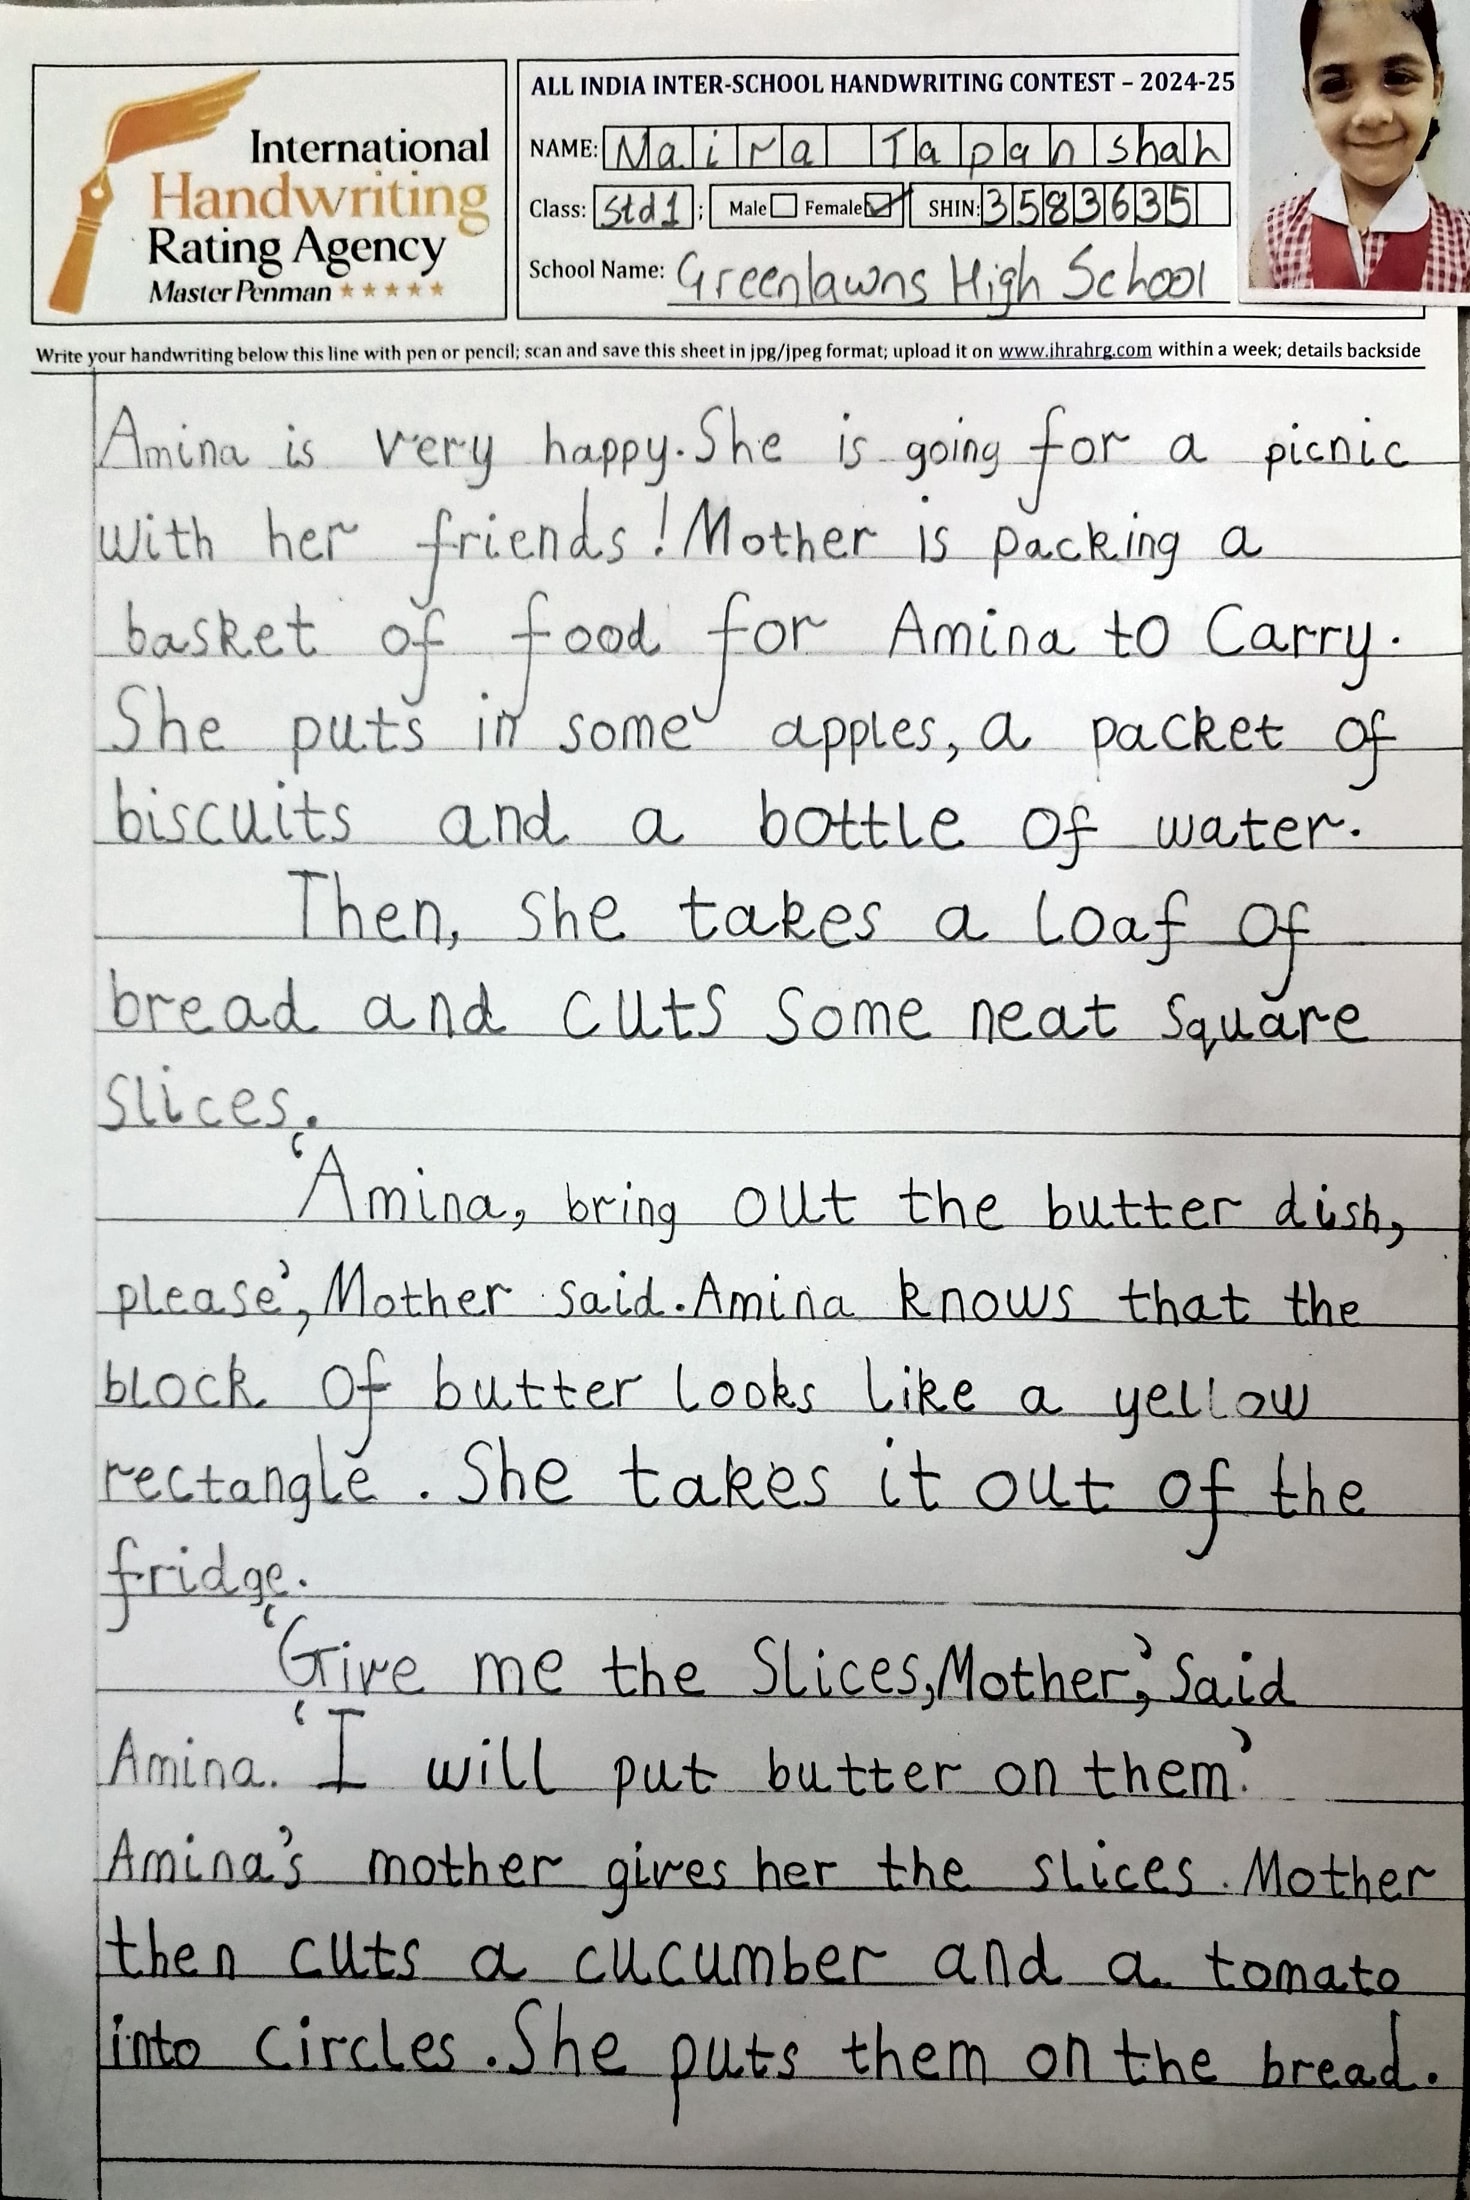 International
Handwriting
Rating Agency
Master Penman
ALL INDIA INTER-SCHOOL HANDWRITING CONTEST – 2024-25
NAME: Maira Tapan Shah
Class: Std 1 ; Male Female SHIN: 3583635
School Name: Greenlawns High School
Write your handwriting below this line with pen or pencil; scan and save this sheet in jpg/jpeg format; upload it on www.ihrahrg.com within a week; details backside
Amina is very happy. She is going for a picnic
with her friends! Mother is packing a
basket of food for Amina to Carry.
She puts in some apples, a packet of
biscuits and a bottle of water.
Then, she takes a loaf of
bread and cuts some neat square
slices.
‘Amina, bring out the butter dish,
please’, Mother said. Amina knows that the
block of butter looks like a yellow
rectangle. She takes it out of the
fridge.
‘Give me the Slices, Mother,’ Said
Amina. ‘I will put butter on them.’
Amina’s mother gives her the slices. Mother
then cuts a cucumber and a tomato
into circles. She puts them on the bread.